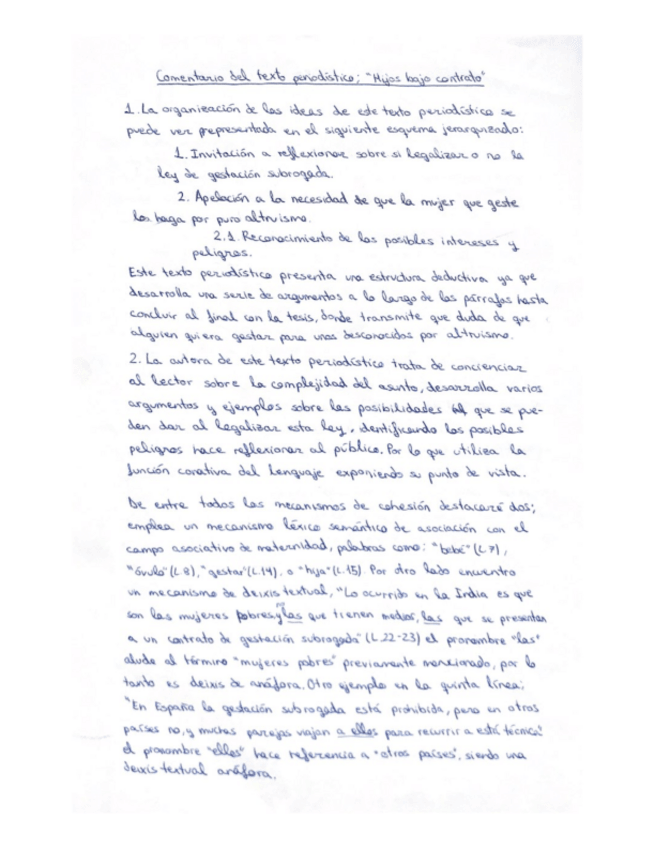 Comentario del texto periodístico; "Hijos bajo contrato"
1. La organización de las ideas de este texto periodístico se
puede ver representada en el siguiente esquema jerarquizado:
1. Invitación a reflexionar sobre si legalizar o no la
ley de gestación subrogada.
2. Apelación a la necesidad de que la mujer que geste
lo haga por puro altruismo.
2.1. Reconocimiento de los posibles intereses y
peligros.
Este texto periodístico presenta una estructura deductiva ya que
desarrolla una serie de argumentos a lo largo de los párrafos hasta
concluir al final con la tesis, donde transmite que duda de que
alguien quiera gestar para unos desconocidos por altruismo.
2. La autora de este texto periodístico trata de concienciar
al lector sobre la complejidad del asunto, desarrolla varios
argumentos y ejemplos sobre las posibilidades que se pue-
den dar al legalizar esta ley, identificando los posibles
peligros hace reflexionar al público. Por lo que utiliza la
función conativa del lenguaje exponiendo su punto de vista.
De entre todos los mecanismos de cohesión destacaré dos;
emplea un mecanismo léxico semántico de asociación con el
campo asociativo de maternidad, palabras como: "bebé" (L.7),
"óvulo" (L.8), "gestar" (L.14), o "hija" (L.15). Por otro lado encuentro
un mecanismo de deixis textual, "Lo ocurrido en la India es que
son las mujeres pobres, y las que tienen medios, las que se presentan
a un contrato de gestación subrogada" (L.22-23) el pronombre "las"
alude al término "mujeres pobres" previamente mencionado, por lo
tanto es deixis de anáfora. Otro ejemplo en la quinta línea;
"En España la gestación subrogada está prohibida, pero en otros
países no, y muchas parejas viajan a ellos para recurrir a esta técnica"
el pronombre "ellos" hace referencia a "otros países", siendo una
deixis textual anáfora.